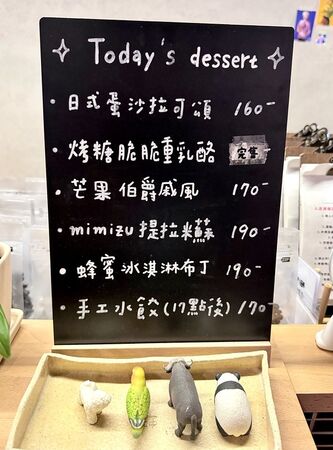 Today's dessert
· 日式蛋沙拉可頌 160-
· 烤糖脆脆重乳酪 完售
· 芒果伯爵戚風 170-
· mimizu提拉米蘇 190-
· 蜂蜜冰淇淋布丁 190-
· 手工水餃(17點後) 170-